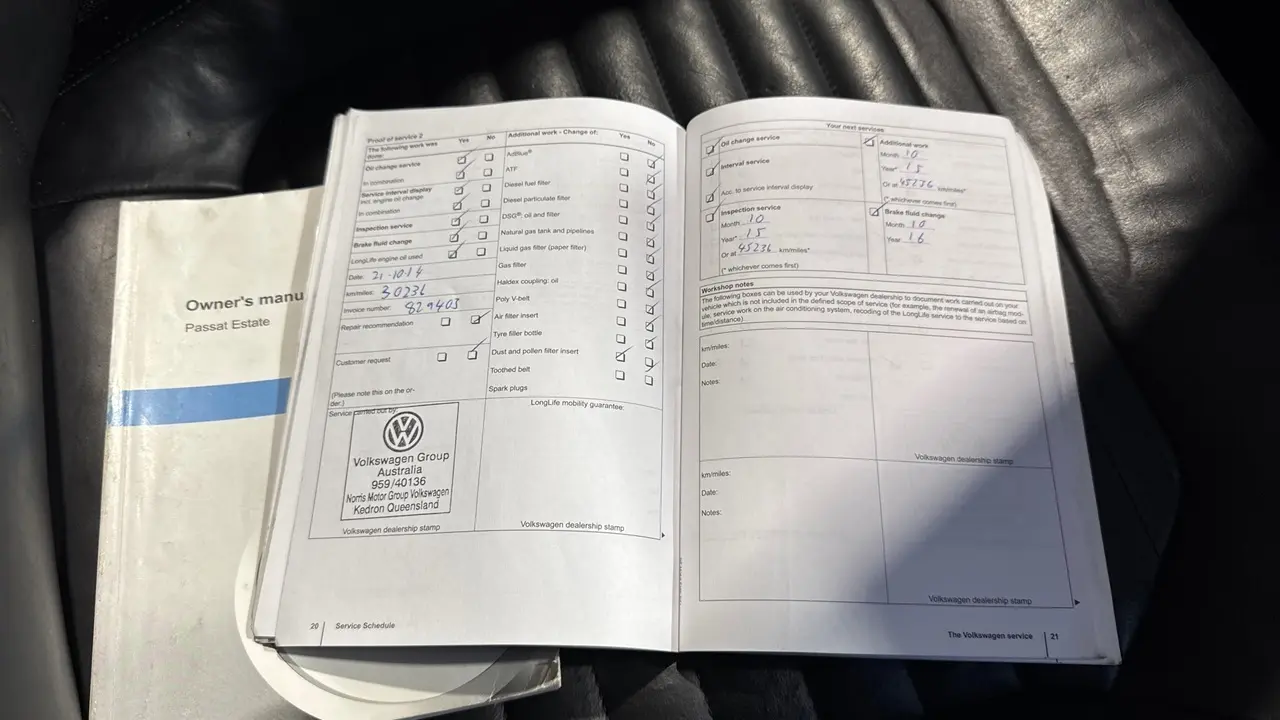 Owner's manu
Passat Estate
Proof of service 2
Yes
No
The following work was
done:
Oil change service
In combination
Service interval display
incl. engine oil change
In combination
Inspection service
Brake fluid change
LongLife engine oil used
Date: 21-10-14
km/miles: 30236
Invoice number: 829403
Repair recommendation
Customer request
(Please note this on the or-
der.)
Additional work - Change of:
Yes
No
AdBlue®
ATF
Diesel fuel filter
Diesel particulate filter
DSG®: oil and filter
Natural gas tank and pipelines
Liquid gas filter (paper filter)
Gas filter
Haldex coupling: oil
Poly V-belt
Air filter insert
Tyre filler bottle
Dust and pollen filter insert
Toothed belt
Spark plugs
Service carried out by:
Volkswagen Group
Australia
959/40136
Norris Motor Group Volkswagen
Kedron Queensland
Volkswagen dealership stamp
LongLife mobility guarantee:
Volkswagen dealership stamp
20
Service Schedule
Your next services
Oil change service
Interval service
Acc. to service interval display
Inspection service
Month 10
Year* 15
Or at 45236 km/miles*
(* whichever comes first)
Additional work
Month 10
Year* 15
Or at 45236 km/miles*
(* whichever comes first)
Brake fluid change
Month 10
Year 16
Workshop notes
The following boxes can be used by your Volkswagen dealership to document work carried out on your
vehicle which is not included in the defined scope of service (for example, the renewal of an airbag mod-
ule, service work on the air conditioning system, recoding of the LongLife service to the service based on
time/distance)
km/miles:
Date:
Notes:
Volkswagen dealership stamp
km/miles:
Date:
Notes:
Volkswagen dealership stamp
The Volkswagen service
21